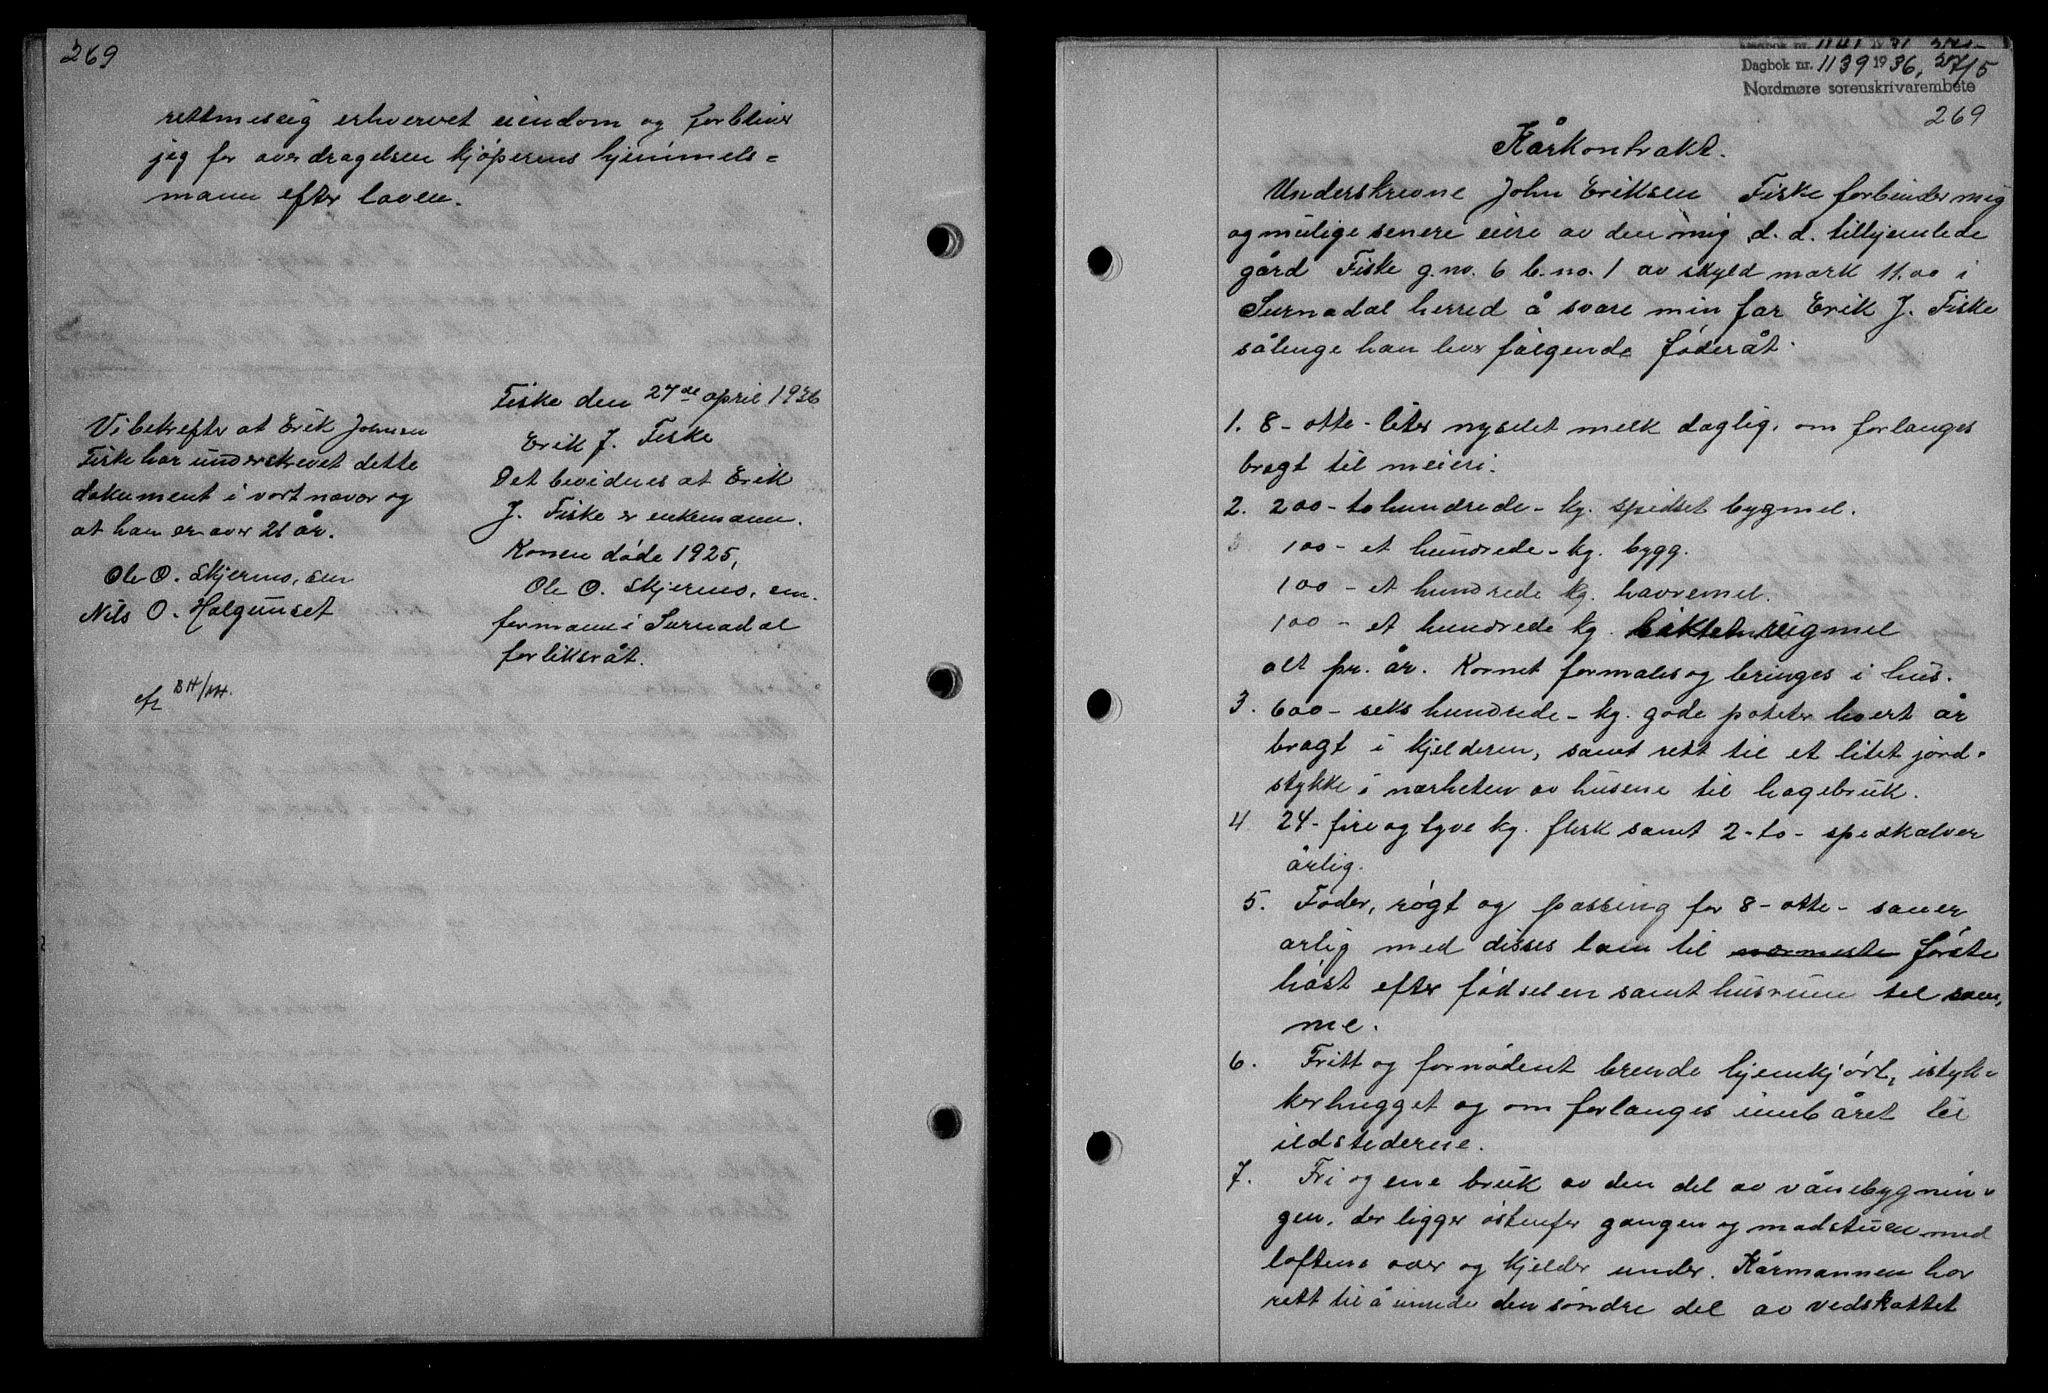 269
rettmessig erhvervet eiendom og forbliver
jeg for overdragelsen kjøperens hjemmels=
mann efter loven.
Fiske den 27de april 1936
Erik J. Fiske
Det bevidnes at Erik
J. Fiske er enkemann.
Konen døde 1925,
Ole O. Skjermo, sen.
formann i Surnadal
forliksråt.
Vi bekrefter at Erik Johnsen
Fiske har underskrevet dette
dokument i vort nævær og
at han er over 21 år.
Ole O. Skjermo, sen
Nils O. Halgunset
BH/
Dagbok nr. 1141
Dagbok nr. 1139 1936, 27/5
Nordmøre sorenskrivarembete
269
Kårkontrakt.
Underskrevne John Eriksen Fiske forbinder mig
og mulige senere eiere av den mig d. d. tilhjemlede
gård Fiske g.no. 6 b.no. 1 av skyld mark 11.00 i
Surnadal herred å svare min far Erik J. Fiske
sålenge han lever følgende føderåt.
1. 8 - otte - liter nysilet melk daglig, om forlanges
bragt til meieri.
2. 200 - to hundrede - kg. spidset bygmel.
100 - et hundrede - kg. bygg.
100 - et hundrede kg. havremel.
100 - et hundrede kg. siktet rugmel
alt pr. år. Kornet formales og bringes i hus.
3. 600 - seks hundrede - kg. gode poteter hvert år
bragt i kjelderen, samt rett til et litet jord=
stykke i nærheten av husene til hagebruk.
4 24 - fire og tyve kg. flesk samt 2 - to - spedkalver
årlig.
5. Foder, røgt og passing for 8 - otte - sauer
årlig med disses lam til nærmeste første
høst efter fødselen samt husrum til sam=
me.
6. Fritt og fornødent brende hjemkjørt, istyk=
kerhugget og om forlanges innbåret til
ildstederne.
7. Fri og ene bruk av den del av vånebygnin=
gen, der ligger østenfor gangen og madstuen med
loftene over og kjelder under. Kårmannen har
rett til å innrede den søndre del av vedskottet